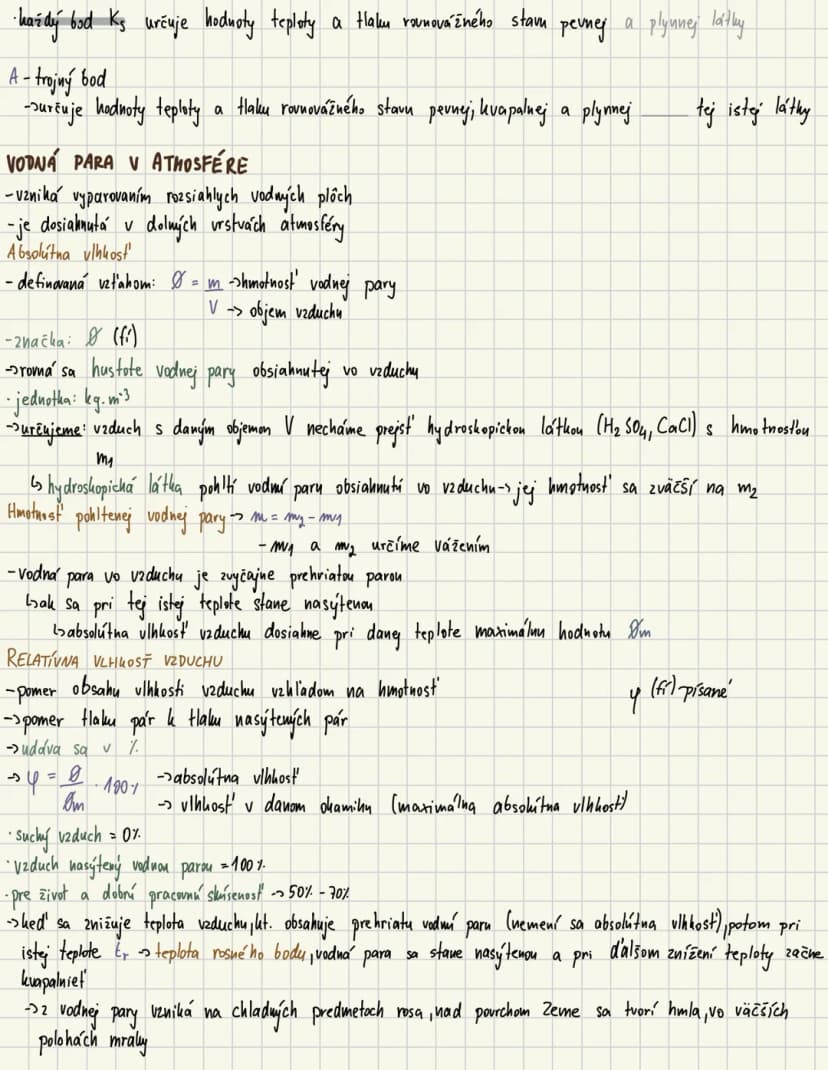 ·každý bod Ks určuje hodnoty teploty a tlaku rovnovážného stavu pevnej a plynnej látky
A - trojný bod
→určuje hodnoty teploty a tlaku rovnovážného stavu pevnej, kvapalnej a plynnej ____ tej istej látky
VODNÁ PARA V ATMOSFÉRE
-vzniká vyparovaním rozsiahlych vodných plôch
-je dosiahnutá v dolných vrstvách atmosféry
Absolútna vlhkosť
- definovaná vzťahom: Ø = m →hmotnosť vodnej pary
V → objem vzduchu
-značka: Ø (fí)
→romá sa hustote vodnej pary obsiahnutej vo vzduchu
·jednotka: kg.m-3
→určujeme: vzduch s daným objemom V necháme prejsť hydroskopickou látkou (H2SO4, CaCl) s hmotnosťou
m1
↳ hydroskopická látka pohltí vodnú paru obsiahnutú vo vzduchu→ jej hmotnosť sa zväčší na m2
Hmotnosť pohltenej vodnej pary→ m = m2 - m1
- m1 a m2 určíme vážením
-vodná para vo vzduchu je zvyčajne prehriatou parou
↳ak sa pri tej istej teplote stane nasýtenou
↳absolútna vlhkosť vzduchu dosiahne pri danej teplote maximálnu hodnotu Øm
RELATÍVNA VLHKOSŤ VZDUCHU
-pomer obsahu vlhkosti vzduchu vzhľadom na hmotnosť φ (fí) písané
→pomer tlaku pár k tlaku nasýtených pár
→udáva sa v %
→ φ = Ø/Øm . 100% →absolútna vlhkosť
→ vlhkosť v danom okamihu (maximálna absolútna vlhkosť)
·suchý vzduch = 0%
·vzduch nasýtený vodnou parou = 100%
·pre život a dobrú pracovnú skúsenosť → 50% - 70%
→keď sa znižuje teplota vzduchu, kt. obsahuje prehriatu vodnú paru (nemení sa absolútna vlhkosť), potom pri
istej teplote tr → teplota rosného bodu, vodná para sa stane nasýtenou a pri ďalšom znížení teploty začne
kvapalnieť
→z vodnej pary vzniká na chladných predmetoch rosa, nad povrchom Zeme sa tvorí hmla, vo väčších
polohách mraky